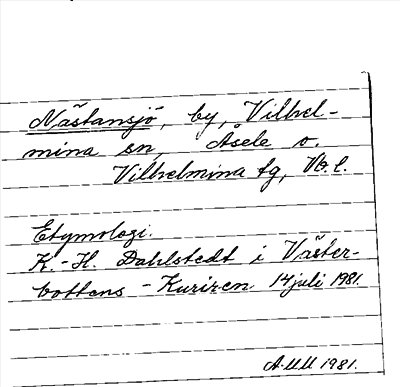 Nästansjö, by, Vilhel-
mina sn, Åsele o.
Vilhelmina tg, Vb. l.
Etymologi.
K.-H. Dahlstedt i Väster-
bottens-Kuriren 14 juli 1981.
A.M.M 1981.